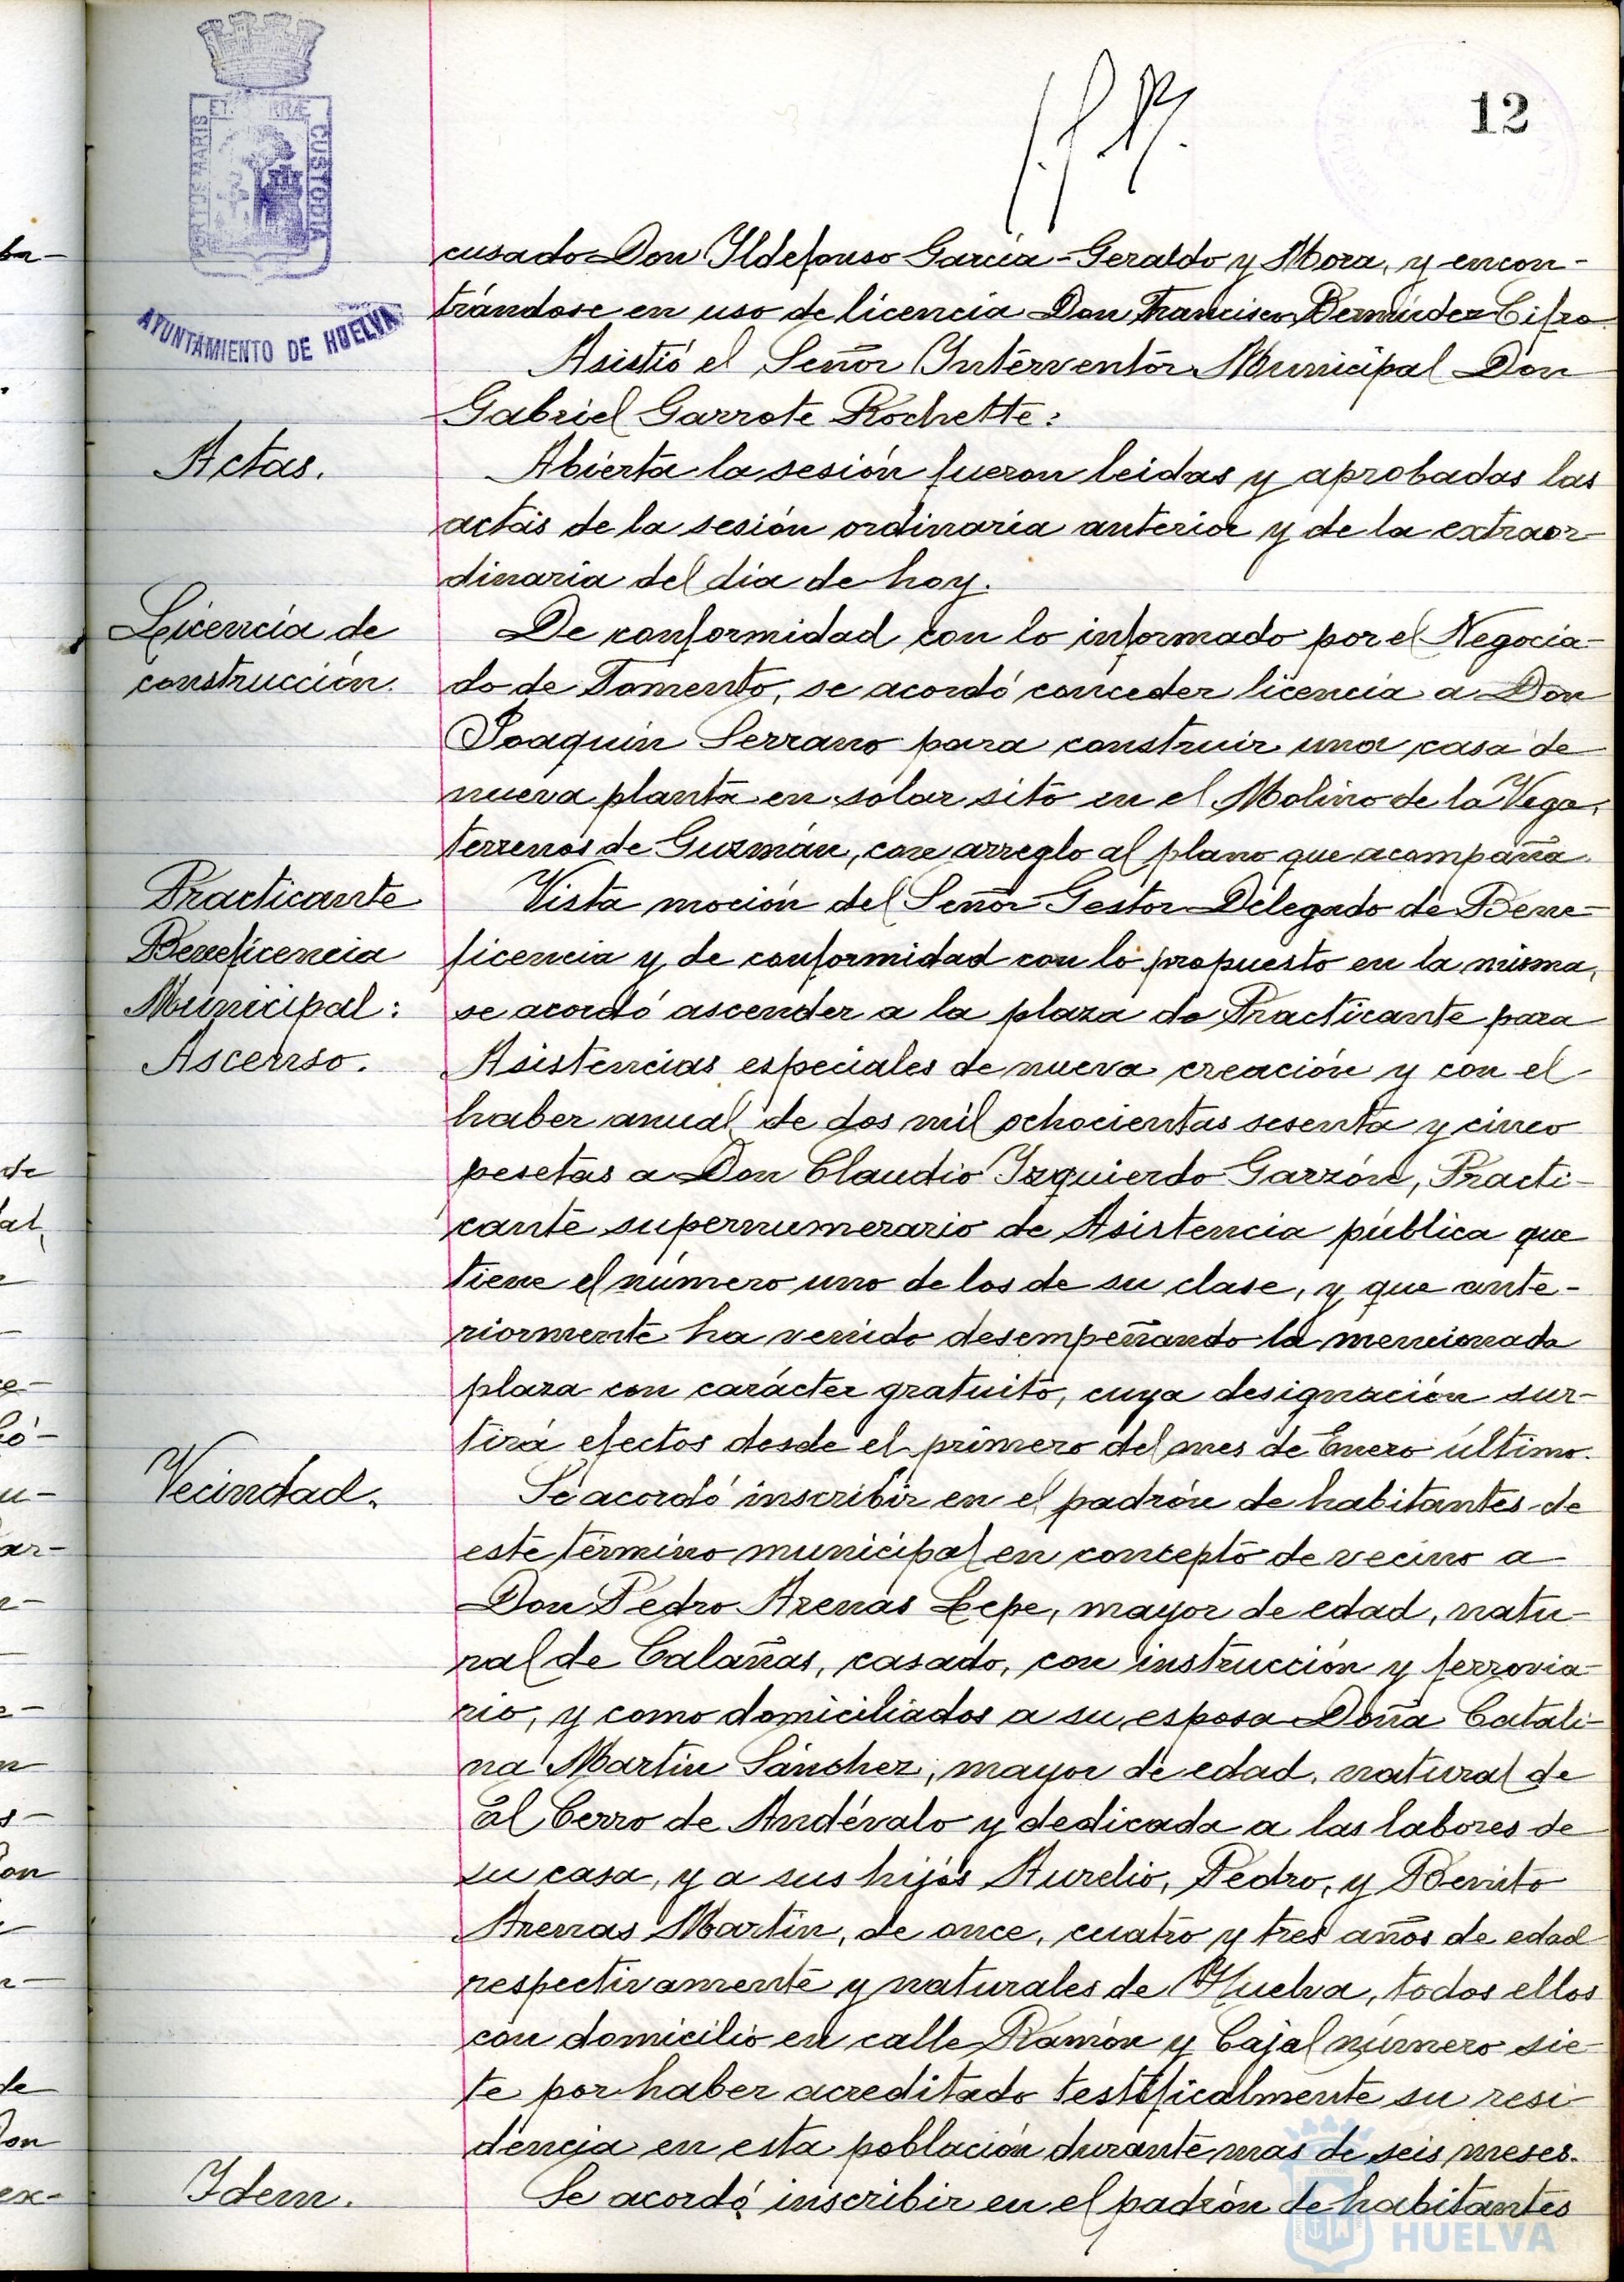 12
PORTUS MARIS ET TERRÆ CUSTODIA
AYUNTAMIENTO DE HUELVA
cusado Don Ildefonso García-Geraldo y Mora, y encon-
trándose en uso de licencia Don Francisco Bermúdez Cifra
Asistió el Señor Interventor Municipal Don
Gabriel Garrote Rochette:
Actas.
Abierta la sesión fueron leidas y aprobadas las
actas de la sesión ordinaria anterior y de la extraor-
dinaria del dia de hoy.
Licencia de
construcción.
De conformidad con lo informado por el Negocia-
do de Fomento, se acordó conceder licencia a Don
Joaquín Serrano para construir una casa de
nueva planta en solar sito en el Molino de la Vega,
terrenos de Guzmán, con arreglo al plano que acompaña.
Practicante
Beneficencia
Municipal:
Ascenso.
Vista moción del Señor Gestor Delegado de Bene-
ficencia y de conformidad con lo propuesto en la misma,
se acordó ascender a la plaza de Practicante para
Asistencias especiales de nueva creación y con el
haber anual de dos mil ochocientas sesenta y cinco
pesetas a Don Claudio Izquierdo Garzón, Practi-
cante supernumerario de Asistencia pública que
tiene el número uno de los de su clase, y que ante-
riormente ha venido desempeñando la mencionada
plaza con carácter gratuito, cuya designación sur-
tirá efectos desde el primero del mes de Enero último.
Vecindad.
Se acordó inscribir en el padrón de habitantes de
este término municipal en concepto de vecino a
Don Pedro Arenas Lepe, mayor de edad, natu-
ral de Calañas, casado, con instrucción y ferrovia-
rio, y como domiciliados a su esposa Doña Catali-
na Martín Sánchez, mayor de edad, natural de
El Cerro de Andévalo y dedicada a las labores de
su casa, y a sus hijos Aurelio, Pedro, y Benito
Arenas Martín, de once, cuatro y tres años de edad
respectivamente y naturales de Huelva, todos ellos
con domicilio en calle Ramón y Cajal número sie-
te por haber acreditado testificalmente su resi-
dencia en esta población durante mas de seis meses.
Idem.
Se acordó inscribir en el padrón de habitantes
HUELVA